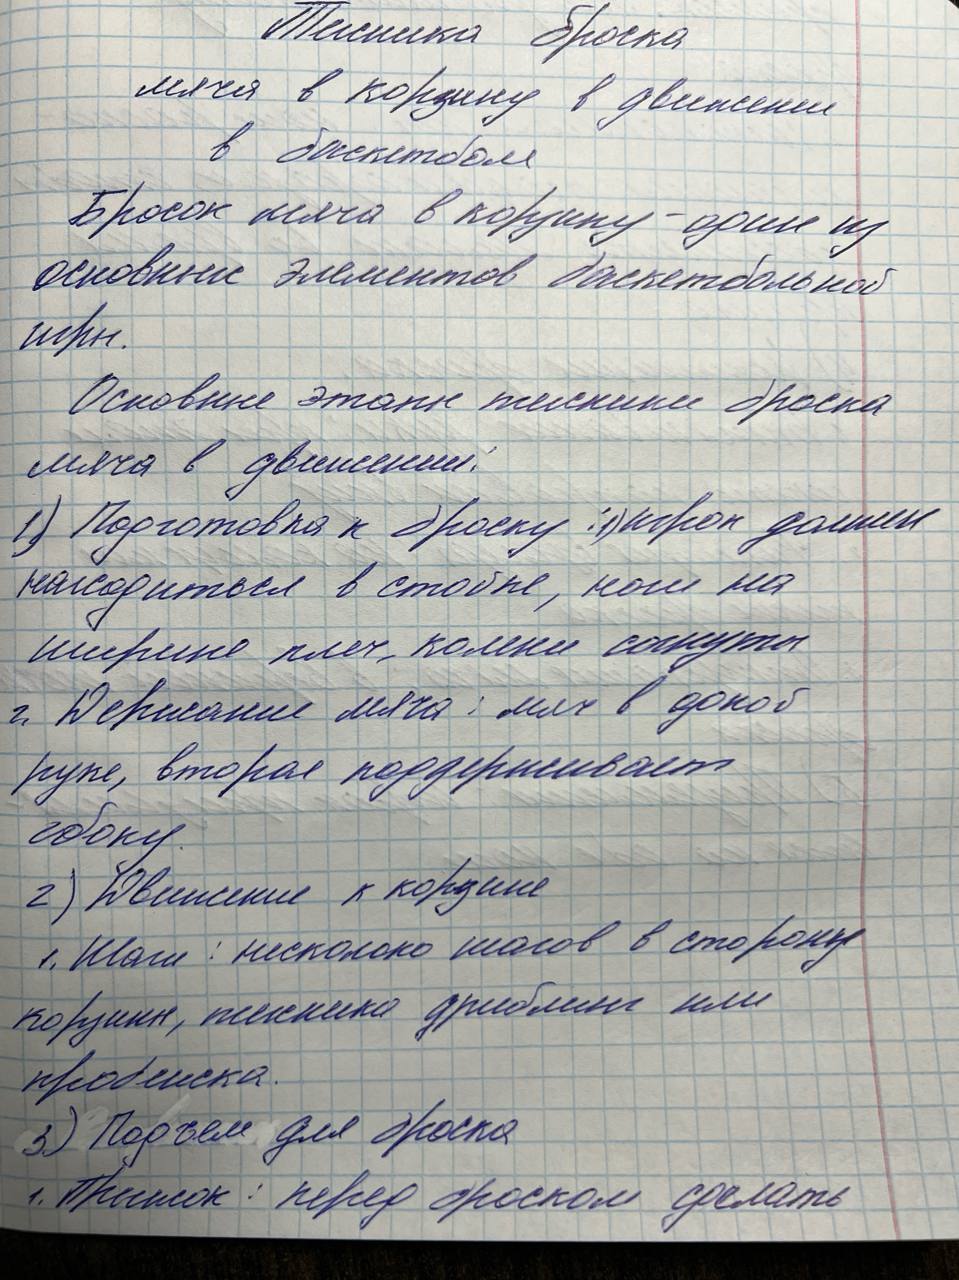 Техника броска
мяча в корзину в движении
в баскетболе
Бросок мяча в корзину - один из
основных элементов баскетбольной
игры.
Основные этапы техники броска
мяча в движении:
1) Подготовка к броску : 1) игрок должен
находиться в стойке, ноги на
ширине плеч, колени согнуты
2. Держание мяча : мяч в одной
руке, вторая поддерживает
сбоку.
2) Движение к корзине
1. Шаги : несколько шагов в сторону
корзины, техника дриблинг или
пробежка.
3) Подъем для броска
1. Прыжок : перед броском сделать